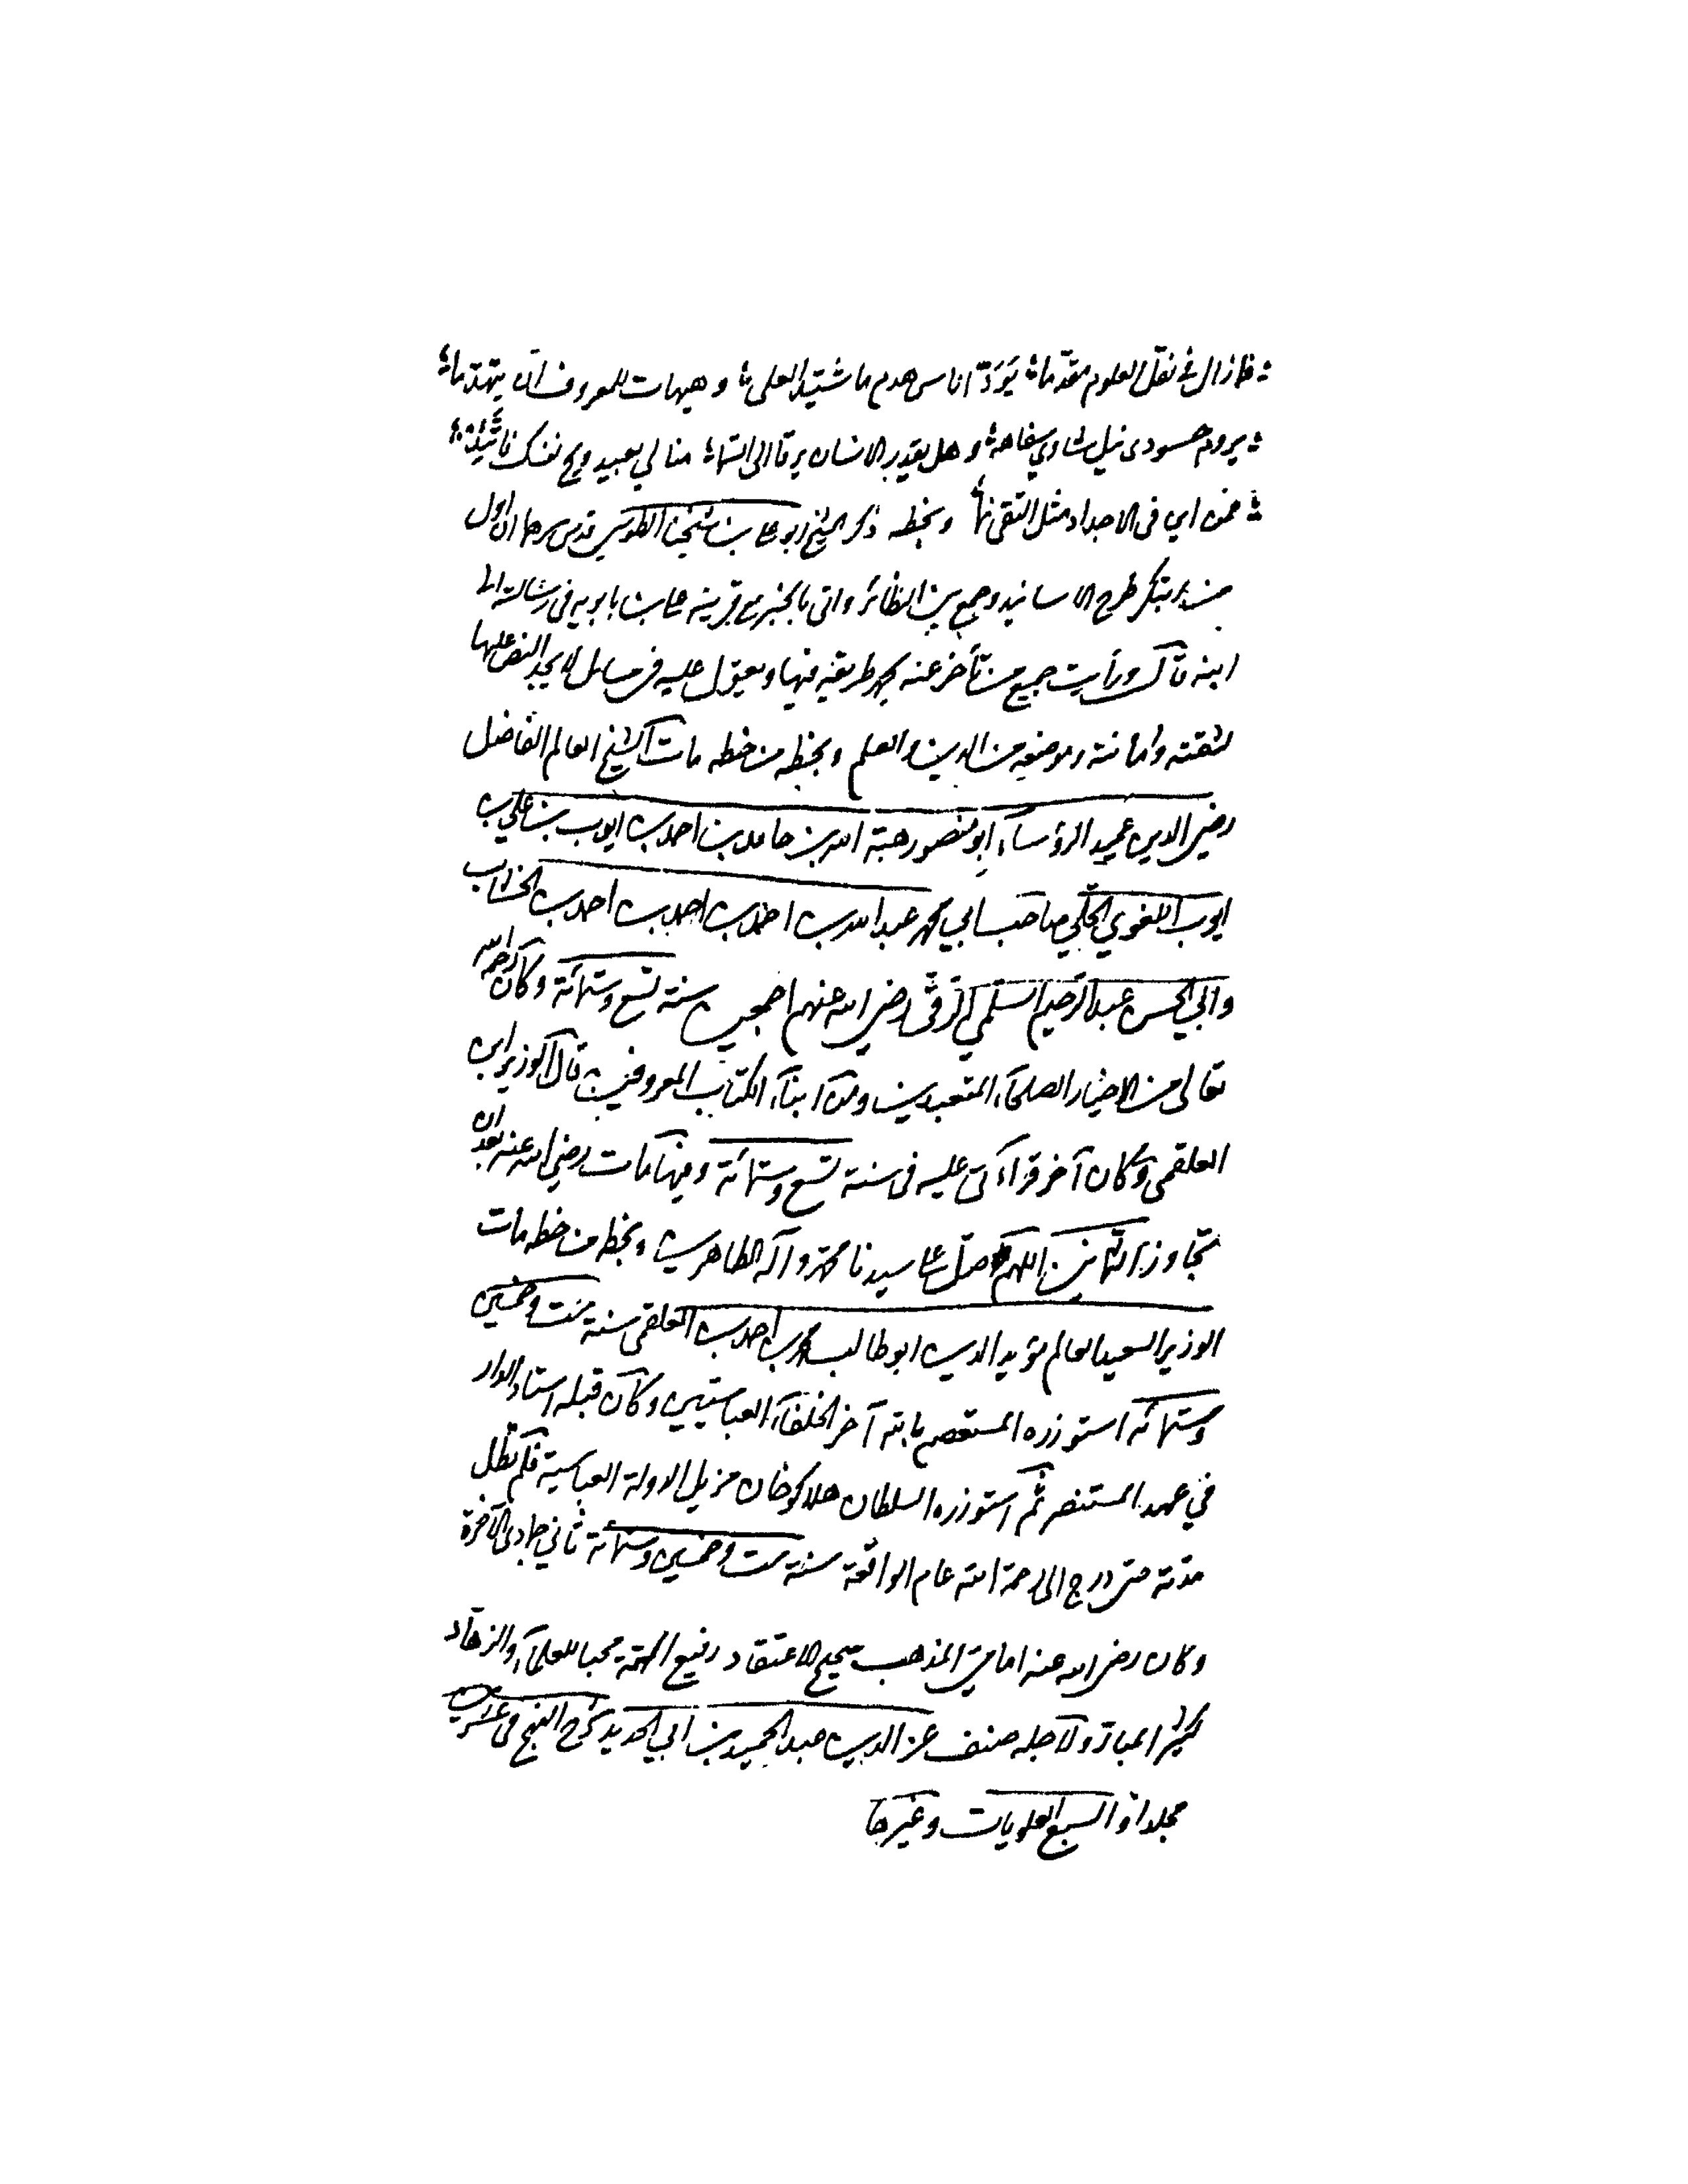 فما زال في نقل العلوم مقدما يود اناس هدم ما شيد العلى وهيهات للمعروف ان يتهدما
يروم حسودى نيل شاوي سفاهة وهل يقدر الانسان يرقا الى السما منالي بعيد ويح نفسك فاتئد
فمن اين في الاجداد مثل التقي نما وبخطه ذكر الشيخ ابو علي بن شيخنا الطوسي قدس سرهما ان اول
من ابتكر طرح الاسانيد وجمع بين النظائر واتى بالخبر مع قرينه علي بن بابويه في رسالته الى
ابنه قال ورأيت جميع من تأخر عنه يحمد طريقه فيها ويعول عليه في مسائل لا يجد النص عليها
لثقته وامانته وموضعه من الدين والعلم وبخطه من خطه مات الشيخ العالم الفاضل
رضي الدين عميد الرؤساء ابو منصور هبة الله بن حامد بن احمد بن ايوب بن علي بن
ايوب اللغوي الحلي صاحب ابي محمد عبد الله بن احمد بن احمد بن احمد بن الخشاب
وابي الحسن عبد الرحيم السلمي الرقي رضي الله عنهم اجمعين سنة تسع وستمائة وكان رحمه الله
تعالى من الاخيار الصلحاء المتعبدين ومن ابناء الكتاب المعروفين قال الوزير ابن
العلقمي وكان آخر قراءتي عليه في سنة تسع وستمائة وفيها مات رضي الله عنه بعد ان
تجاوز الثمانين اللهم صل على سيدنا محمد وآله الطاهرين وبخطه من خطه مات
الوزير السعيد العالم مؤيد الدين ابو طالب محمد بن احمد بن العلقمي سنة ست وخمسين
وستمائه استوزره المستعصم بالله آخر الخلفاء العباسيين وكان قبله استاد الدار
في عهد المستنصر ثم استوزره السلطان هلاكو خان مزيل الدولة العباسية فلم تطل
مدته حتى درج الى رحمة الله عام الواقعة سنة ست وخمسين وستمائة ثاني جمادى الآخرة
وكان رضي الله عنه امامي المذهب صحيح الاعتقاد رفيع الهمة محبا للعلماء والزهاد
كثير المبار ولاجله صنف عز الدين عبد الحميد بن ابي الحديد شرح النهج في عشرين
مجلدا والسبع العلويات وغيرها